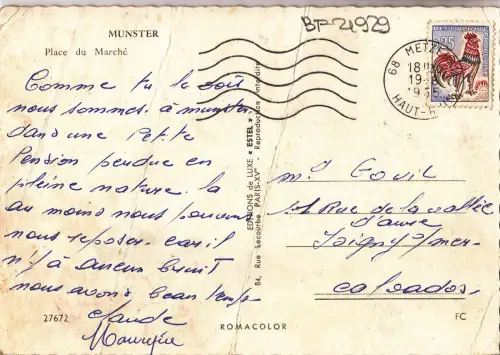 MUNSTER
Place du Marché
BF-21929
Comme tu le vois
nous sommes à munster
dans une Petite
Pension perdue en
pleine nature. la
au moins nous pouvons
nous reposer car il
n'y à aucun bruit
nous avons beau temps
Claude
27672
ROMACOLOR
FC
EDITIONS de LUXE « ESTEL » - Reproduction interdite
84, Rue Lecourbe PARIS-XVe
68 METZE
18
19-
HAUT-R
0,25
1 Rue de la vallée
d'aure
Isigny/mer
calvados